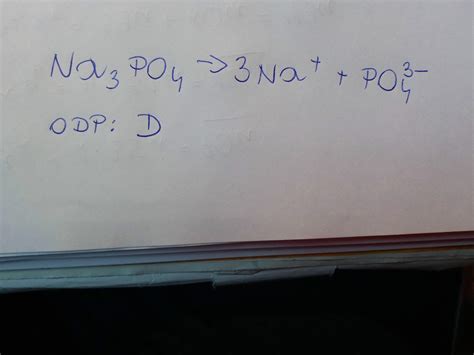 Na₃PO₄ → 3Na⁺ + PO₄³⁻
ODP: D